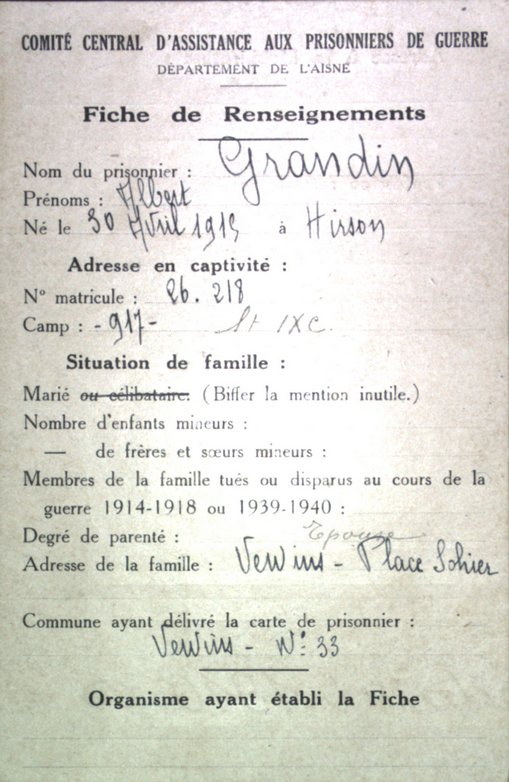 COMITÉ CENTRAL D'ASSISTANCE AUX PRISONNIERS DE GUERRE
DÉPARTEMENT DE L'AISNE
Fiche de Renseignements
Nom du prisonnier : Grandin
Prénoms : Albert
Né le 30 Avril 1915 à Hirson
Adresse en captivité :
N° matricule : 26.218
Camp : -917- St IXC.
Situation de famille :
Marié ou célibataire. (Biffer la mention inutile.)
Nombre d'enfants mineurs :
— de frères et sœurs mineurs :
Membres de la famille tués ou disparus au cours de la
guerre 1914-1918 ou 1939-1940 :
Degré de parenté : Epouse
Adresse de la famille : Vervins - Place Sohier
Commune ayant délivré la carte de prisonnier :
Vervins - N° 33
Organisme ayant établi la Fiche